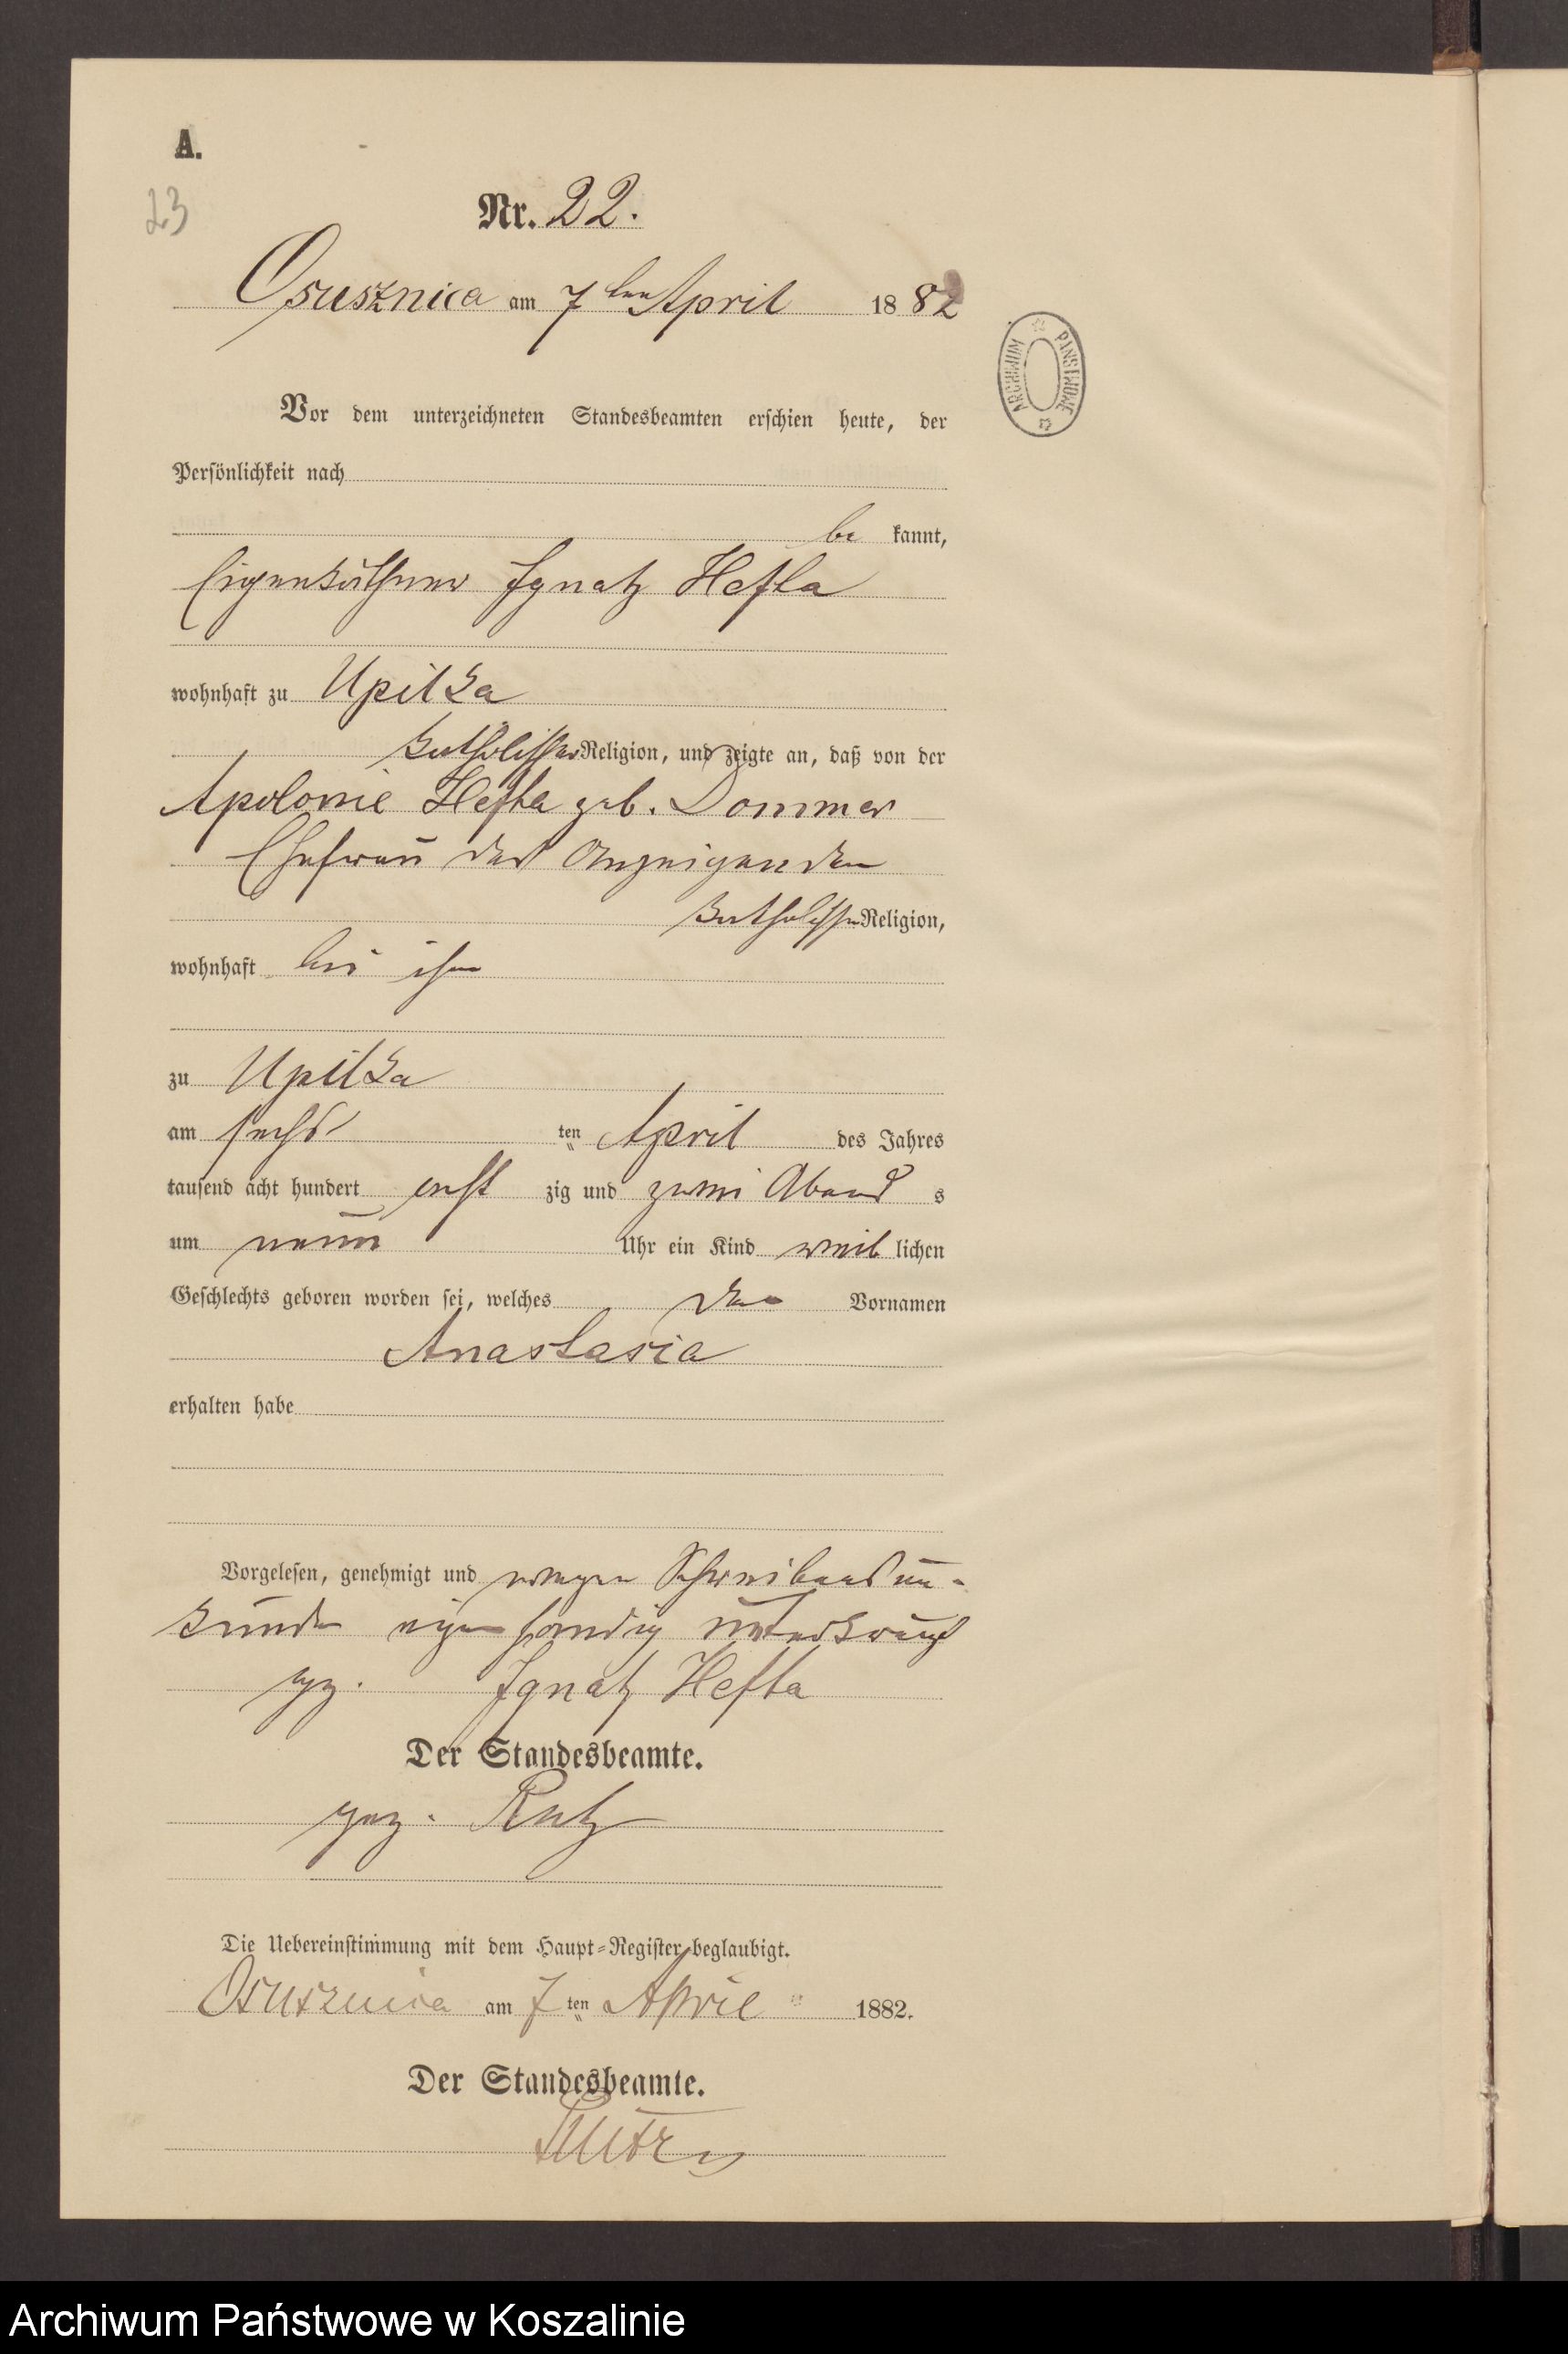 A.
23
Nr. 22.
Osusznica am 7ten April 1882
ARCHIWUM PAŃSTWOWE
Vor dem unterzeichneten Standesbeamten erschien heute, der
Persönlichkeit nach
be kannt,
Eigenkäthner Ignatz Hefta
wohnhaft zu Upilka
katholischer Religion, und zeigte an, daß von der
Apolonie Hefta geb. Dommer
Ehefrau des Anzeigenden
katholischer Religion,
wohnhaft bei ihm
zu Upilka
am sechs ten April des Jahres
tausend acht hundert acht zig und zwei Abend s
um neun Uhr ein Kind weib lichen
Geschlechts geboren worden sei, welches den Vornamen
Anastasia
erhalten habe
Vorgelesen, genehmigt und wegen Schreibens un-
kunde eigenhändig unterkreuzt
gz. Ignatz Hefta
Der Standesbeamte.
gez. Rutz
Die Uebereinstimmung mit dem Haupt-Register beglaubigt.
Osusznica am 7ten April 1882.
Der Standesbeamte.
Rutz
Archiwum Państwowe w Koszalinie